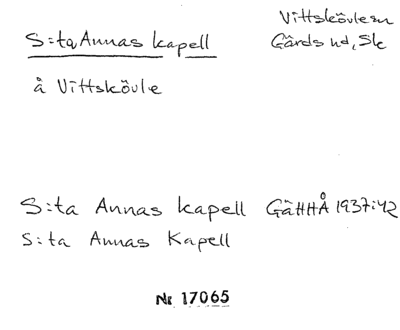 S:ta Annas kapell
Vittskövle sn
Gärds hd, Sk
å Vittskövle
S:ta Annas kapell GäHHÅ 1937:42
S:ta Annas Kapell
Nr 17065